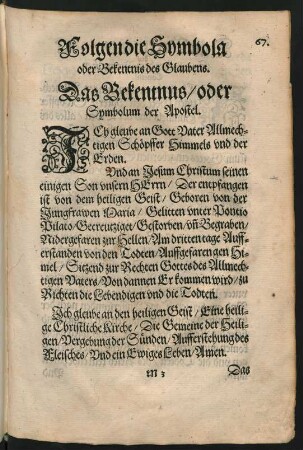 Folgen die Symbola
67.
oder Bekentnis des Glaubens.
Das Bekentnus / oder
Symbolum der Apostel.
ICh gleube an Gott Vater Allmech-
tigen Schöpffer Himmels vnd der
Erden.
Vnd an Jesum Christum seinen
einigen Son vnsern HErrn / Der entpfangen
ist von dem heiligen Geist / Geboren von der
Jungfrawen Maria / Gelitten vnter Pontio
Pilato / Gecreutziget / Gestorben / vñ Begraben /
Nidergefaren zur Hellen / Am dritten tage Auff-
erstanden von den Todten / Auffgefaren gen Hi-
mel / Sitzend zur Rechten Gottes des Allmech-
tigen Vaters / Von dannen Er kommen wird / zu
Richten die Lebendigen vnd die Todten.
Ich gleube an den heiligen Geist / Eine heili-
ge Christliche Kirche / Die Gemeine der Heili-
gen / Vergebung der Sünden / Aufferstehung des
Fleisches / Vnd ein Ewiges Leben / Amen.
M 3
Das